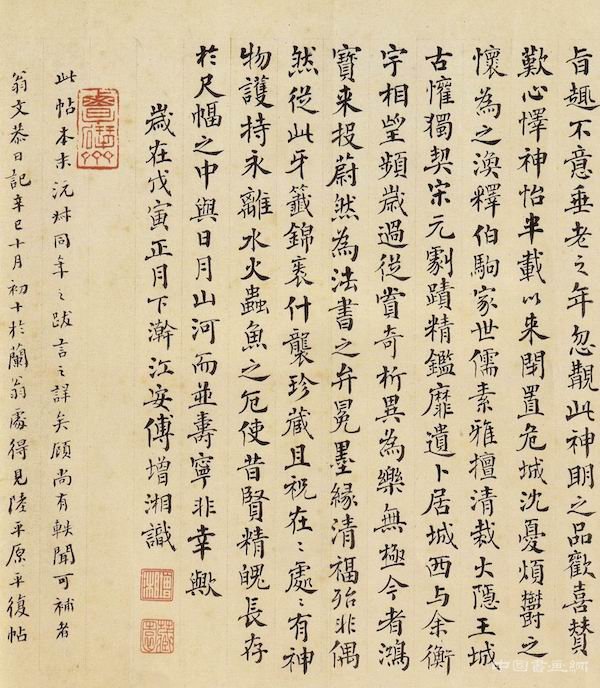 旨趣不意垂老之年忽覯此神明之品歡喜贊
歎心懌神怡半載以來閉置危城沈憂煩鬱之
懷為之渙釋伯駒家世儒素雅擅清裁大隱王城
古懽獨契宋元劇蹟精鑑靡遺卜居城西与余衡
宇相望頻歲過從賞奇析異為樂無極今者鴻
寶来投蔚然為法書之弁冕墨緣清福殆非偶
然從此牙籤錦裹什襲珍藏且祝在〻處〻有神
物護持永離水火蟲魚之厄使昔賢精魄長存
於尺幅之中與日月山河而並壽寧非幸歟
歲在戊寅正月下澣江安傅增湘識
藏園
此帖本末沅尗同年之跋言之詳矣顧尚有軼聞可補者
翁文恭日記辛巳十月初十於蘭翁處得見陸平原平復帖
中国書画網